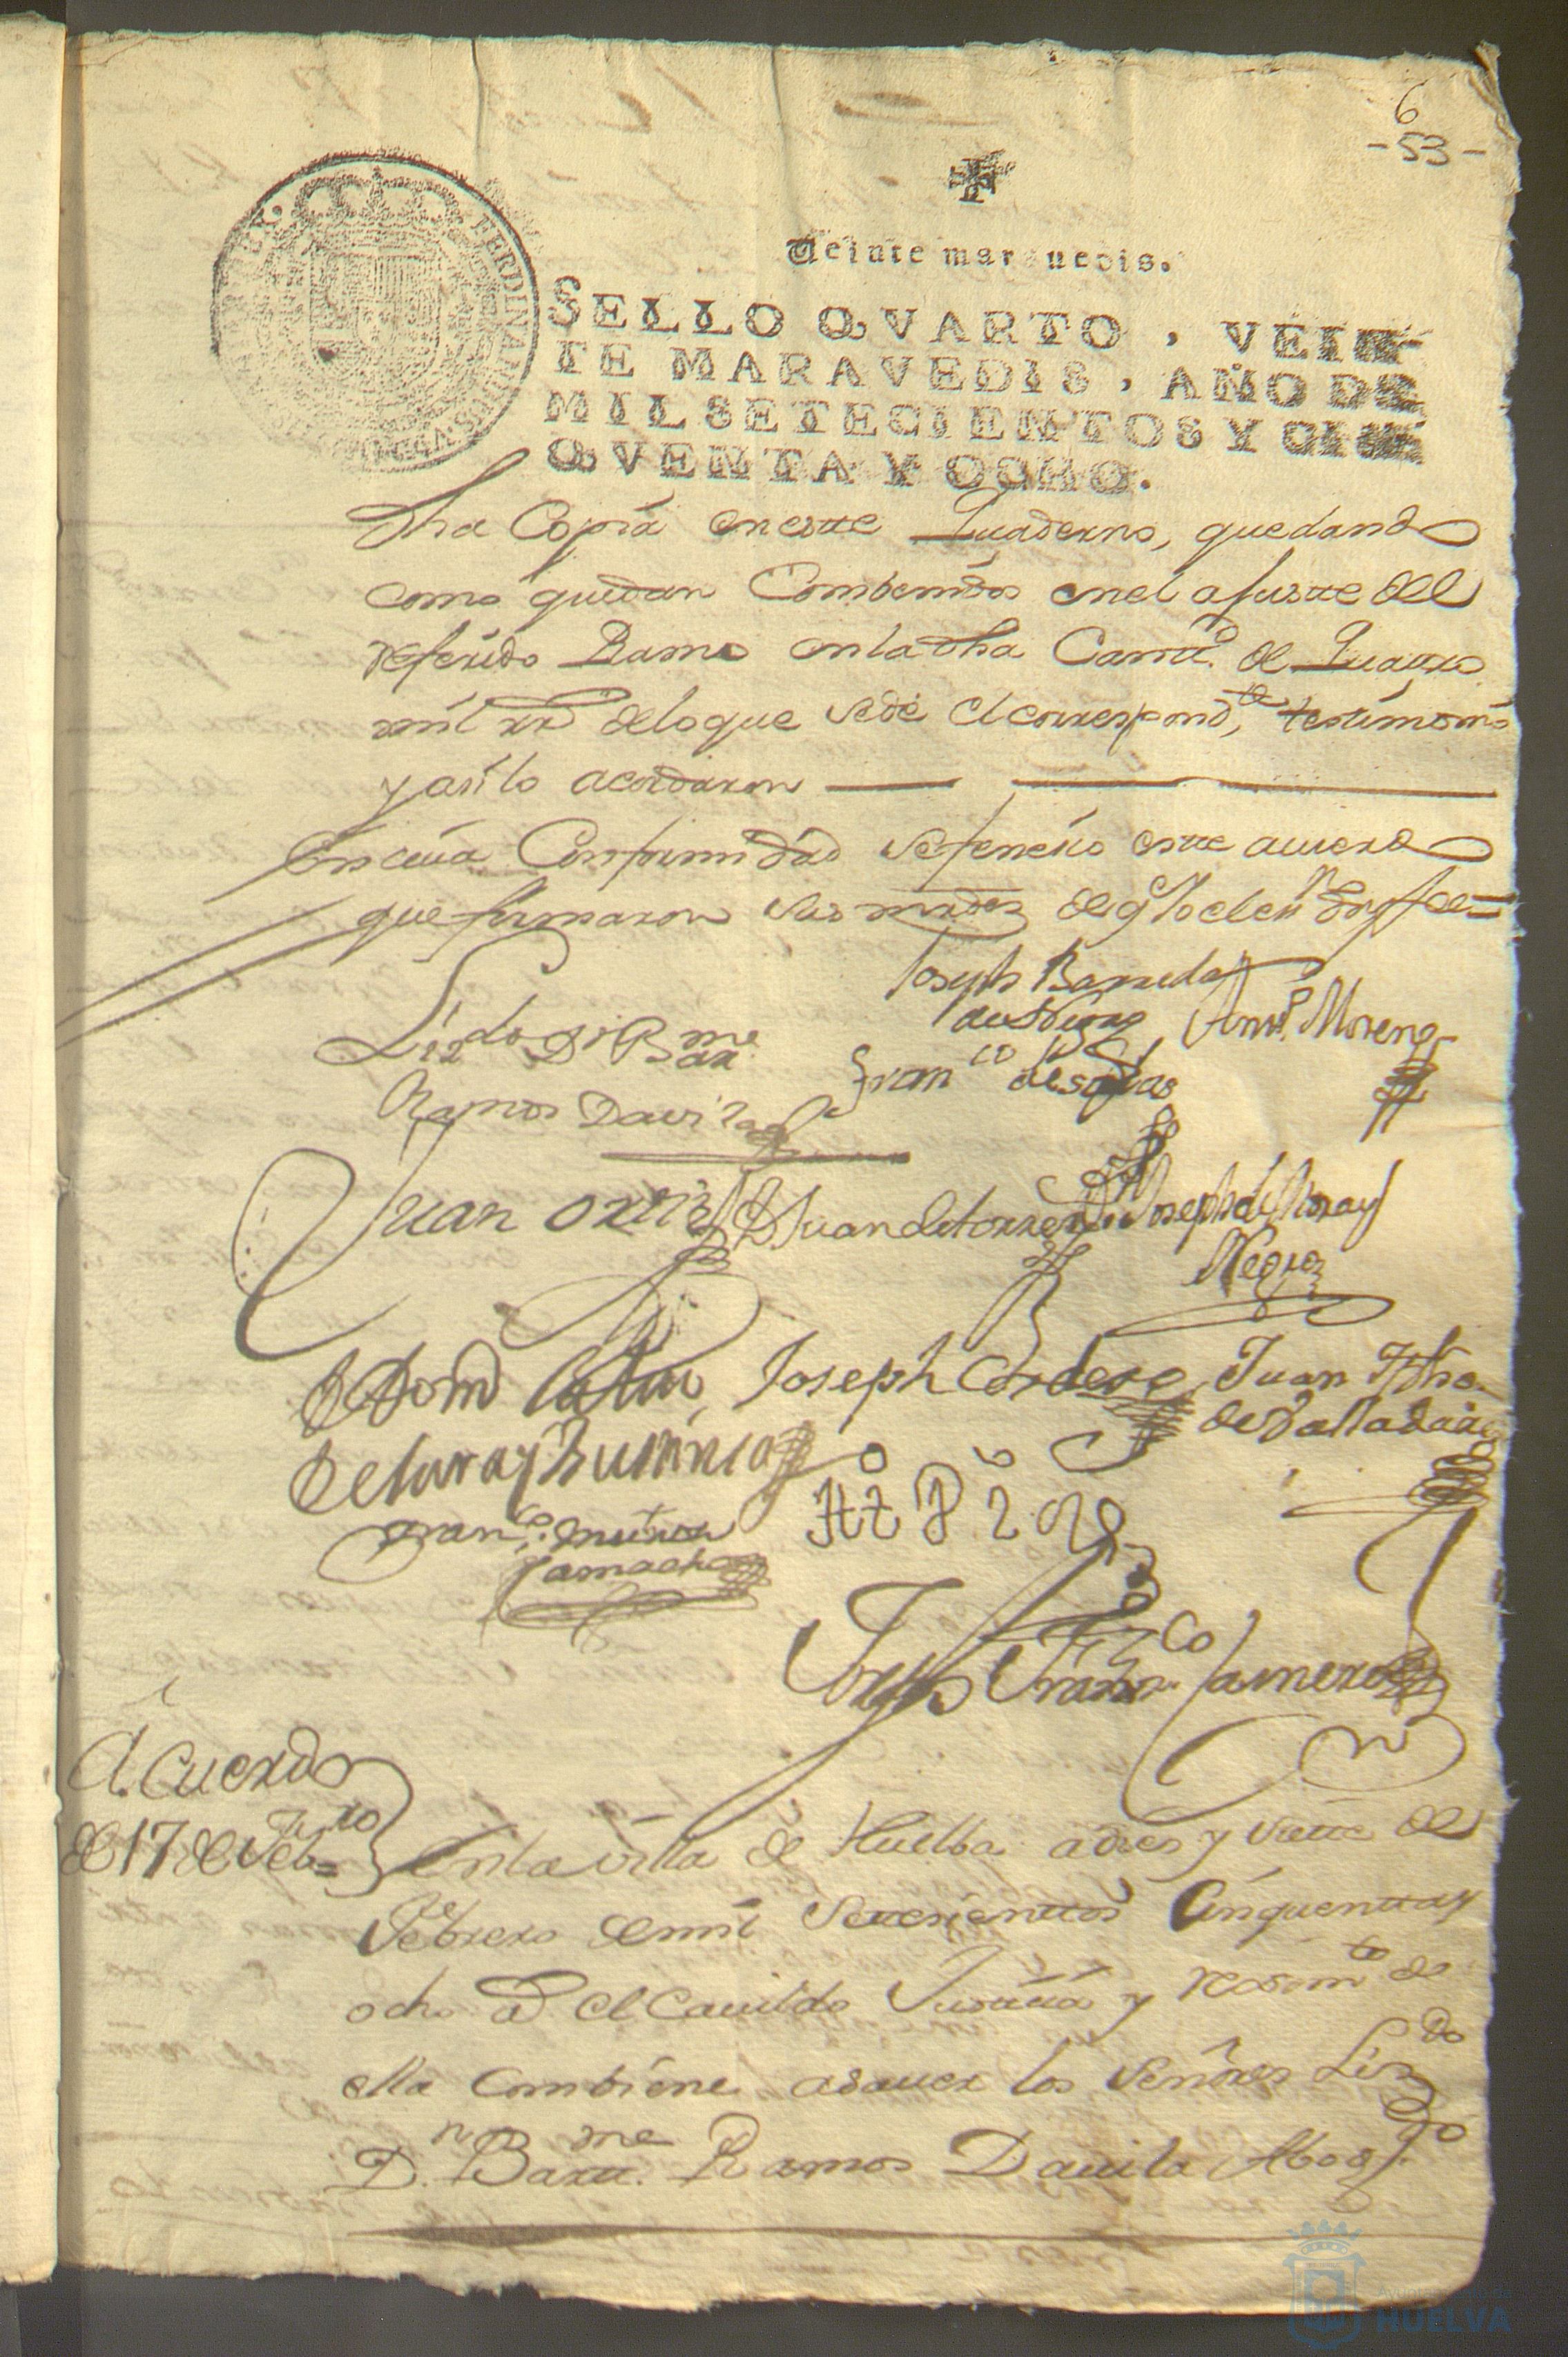 6
-53-
Veinte maravedis.
SELLO QVARTO, VEIN
TE MARAVEDIS, AÑO DE
MIL SETECIENTOS Y CIN
QVENTA Y OCHO.
FERDINANDUS
dha Copia en este Quaderno, quedando
como quedan Combenidos en el ajuste del
referido Ramo en la dha Cantd. de Quatro
mil rrs de lo que se dé el correspondte, testimonio
y asi lo acordaron
En cuia Conformidad se fenecio este acuerdo
que firmaron sus mrdes de q Yo el essno Doy fee=
Joseph Barreda
Antº. Moreno
Lizdo Dn Barme
Ramos Davila
Franco de
Juan Ortiz
D Juan de torres
Joseph de
Negro
Joseph Cordero
Juan
de Valladares
Franco.
Camacho
Joseph Franco. Camero
Acuerdo
de 17 de Febro=
En la villa de Huelba a dies y siette de
Febrero de mil settecienttos Cinquentta y
ocho as. el Cauildo Justtiª y reximto de
ella combiene a sauer los Señores Lizdo
Dn. Bartme Ramos Dauila Abogdo
Ayuntamiento de
HUELVA